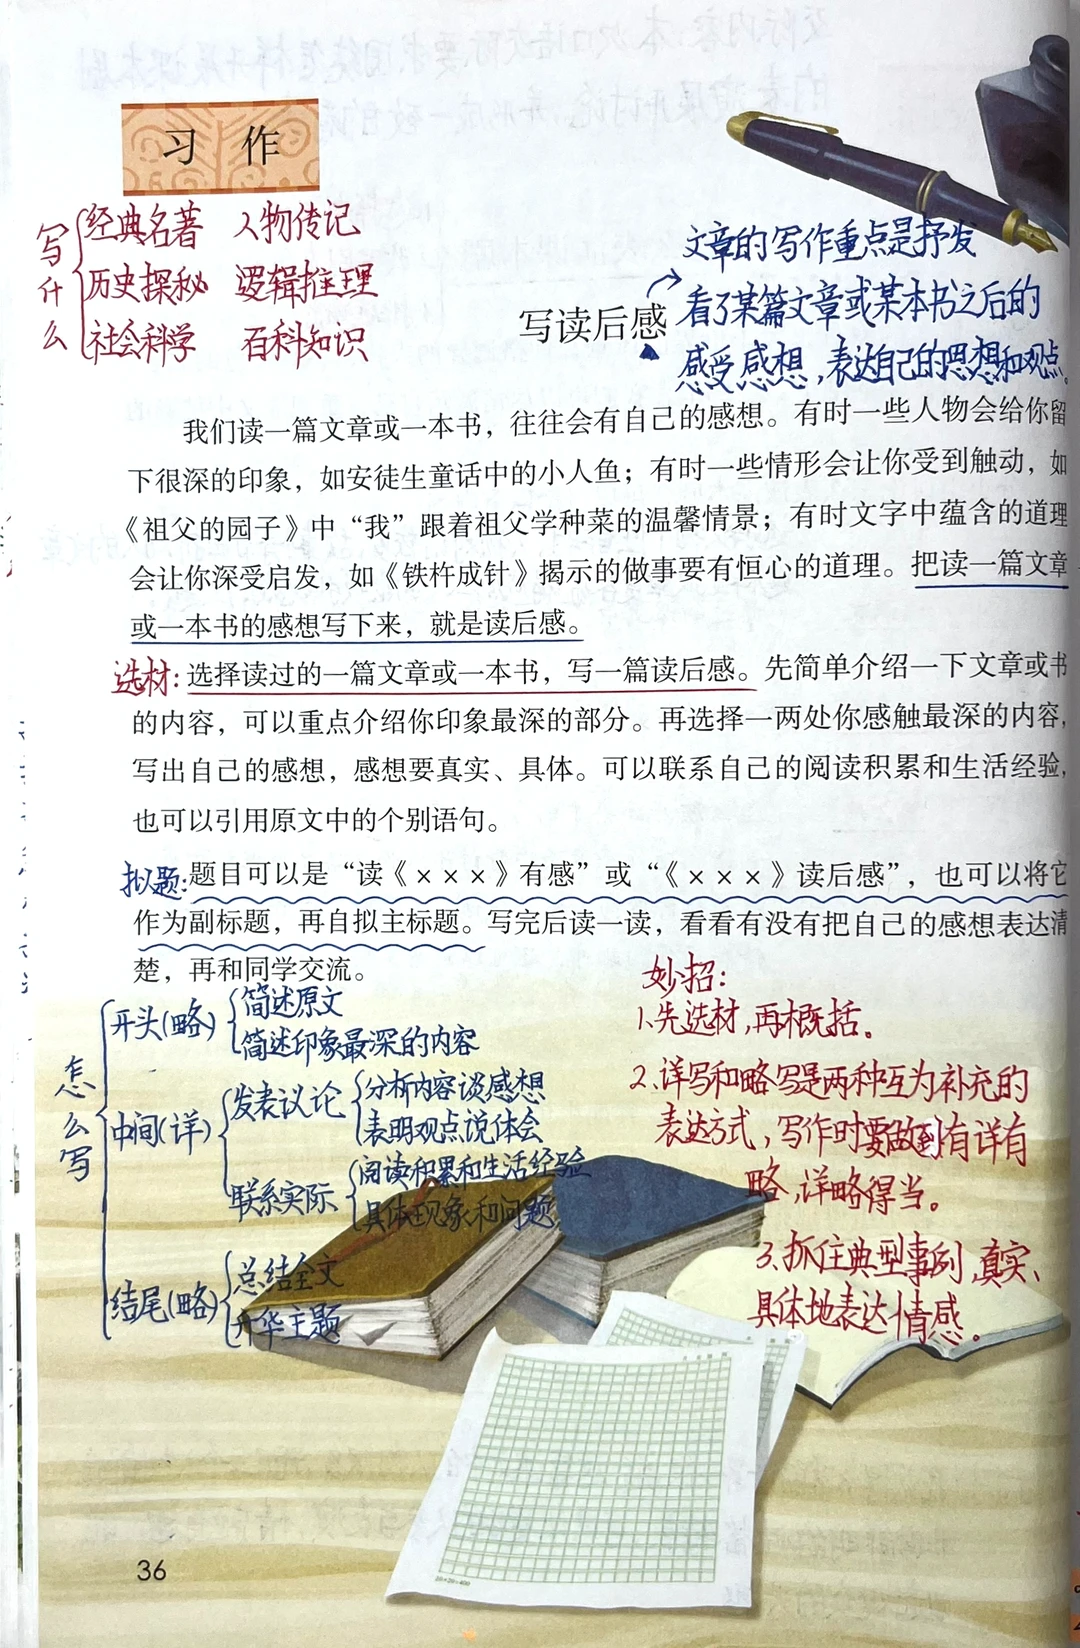 习 作
写什么
经典名著 人物传记
历史探秘 逻辑推理
社会科学 百科知识
写读后感
文章的写作重点是抒发
看了某篇文章或某本书之后的
感受感想，表达自己的思想和观点。
我们读一篇文章或一本书，往往会有自己的感想。有时一些人物会给你留
下很深的印象，如安徒生童话中的小人鱼；有时一些情形会让你受到触动，如
《祖父的园子》中“我”跟着祖父学种菜的温馨情景；有时文字中蕴含的道理
会让你深受启发，如《铁杵成针》揭示的做事要有恒心的道理。把读一篇文章
或一本书的感想写下来，就是读后感。
选材：选择读过的一篇文章或一本书，写一篇读后感。先简单介绍一下文章或书
的内容，可以重点介绍你印象最深的部分。再选择一两处你感触最深的内容，
写出自己的感想，感想要真实、具体。可以联系自己的阅读积累和生活经验，
也可以引用原文中的个别语句。
拟题：题目可以是“读《×××》有感”或“《×××》读后感”，也可以将它
作为副标题，再自拟主标题。写完后读一读，看看有没有把自己的感想表达清
楚，再和同学交流。
怎么写
开头(略)
简述原文
简述印象最深的内容
中间(详)
发表议论
分析内容谈感想
表明观点说体会
联系实际
阅读积累和生活经验
具体现象和问题
结尾(略)
总结全文
升华主题
妙招：
1.先选材，再概括。
2.详写和略写是两种互为补充的
表达方式，写作时要做到有详有
略，详略得当。
3.抓住典型事例，真实、
具体地表达情感。
36